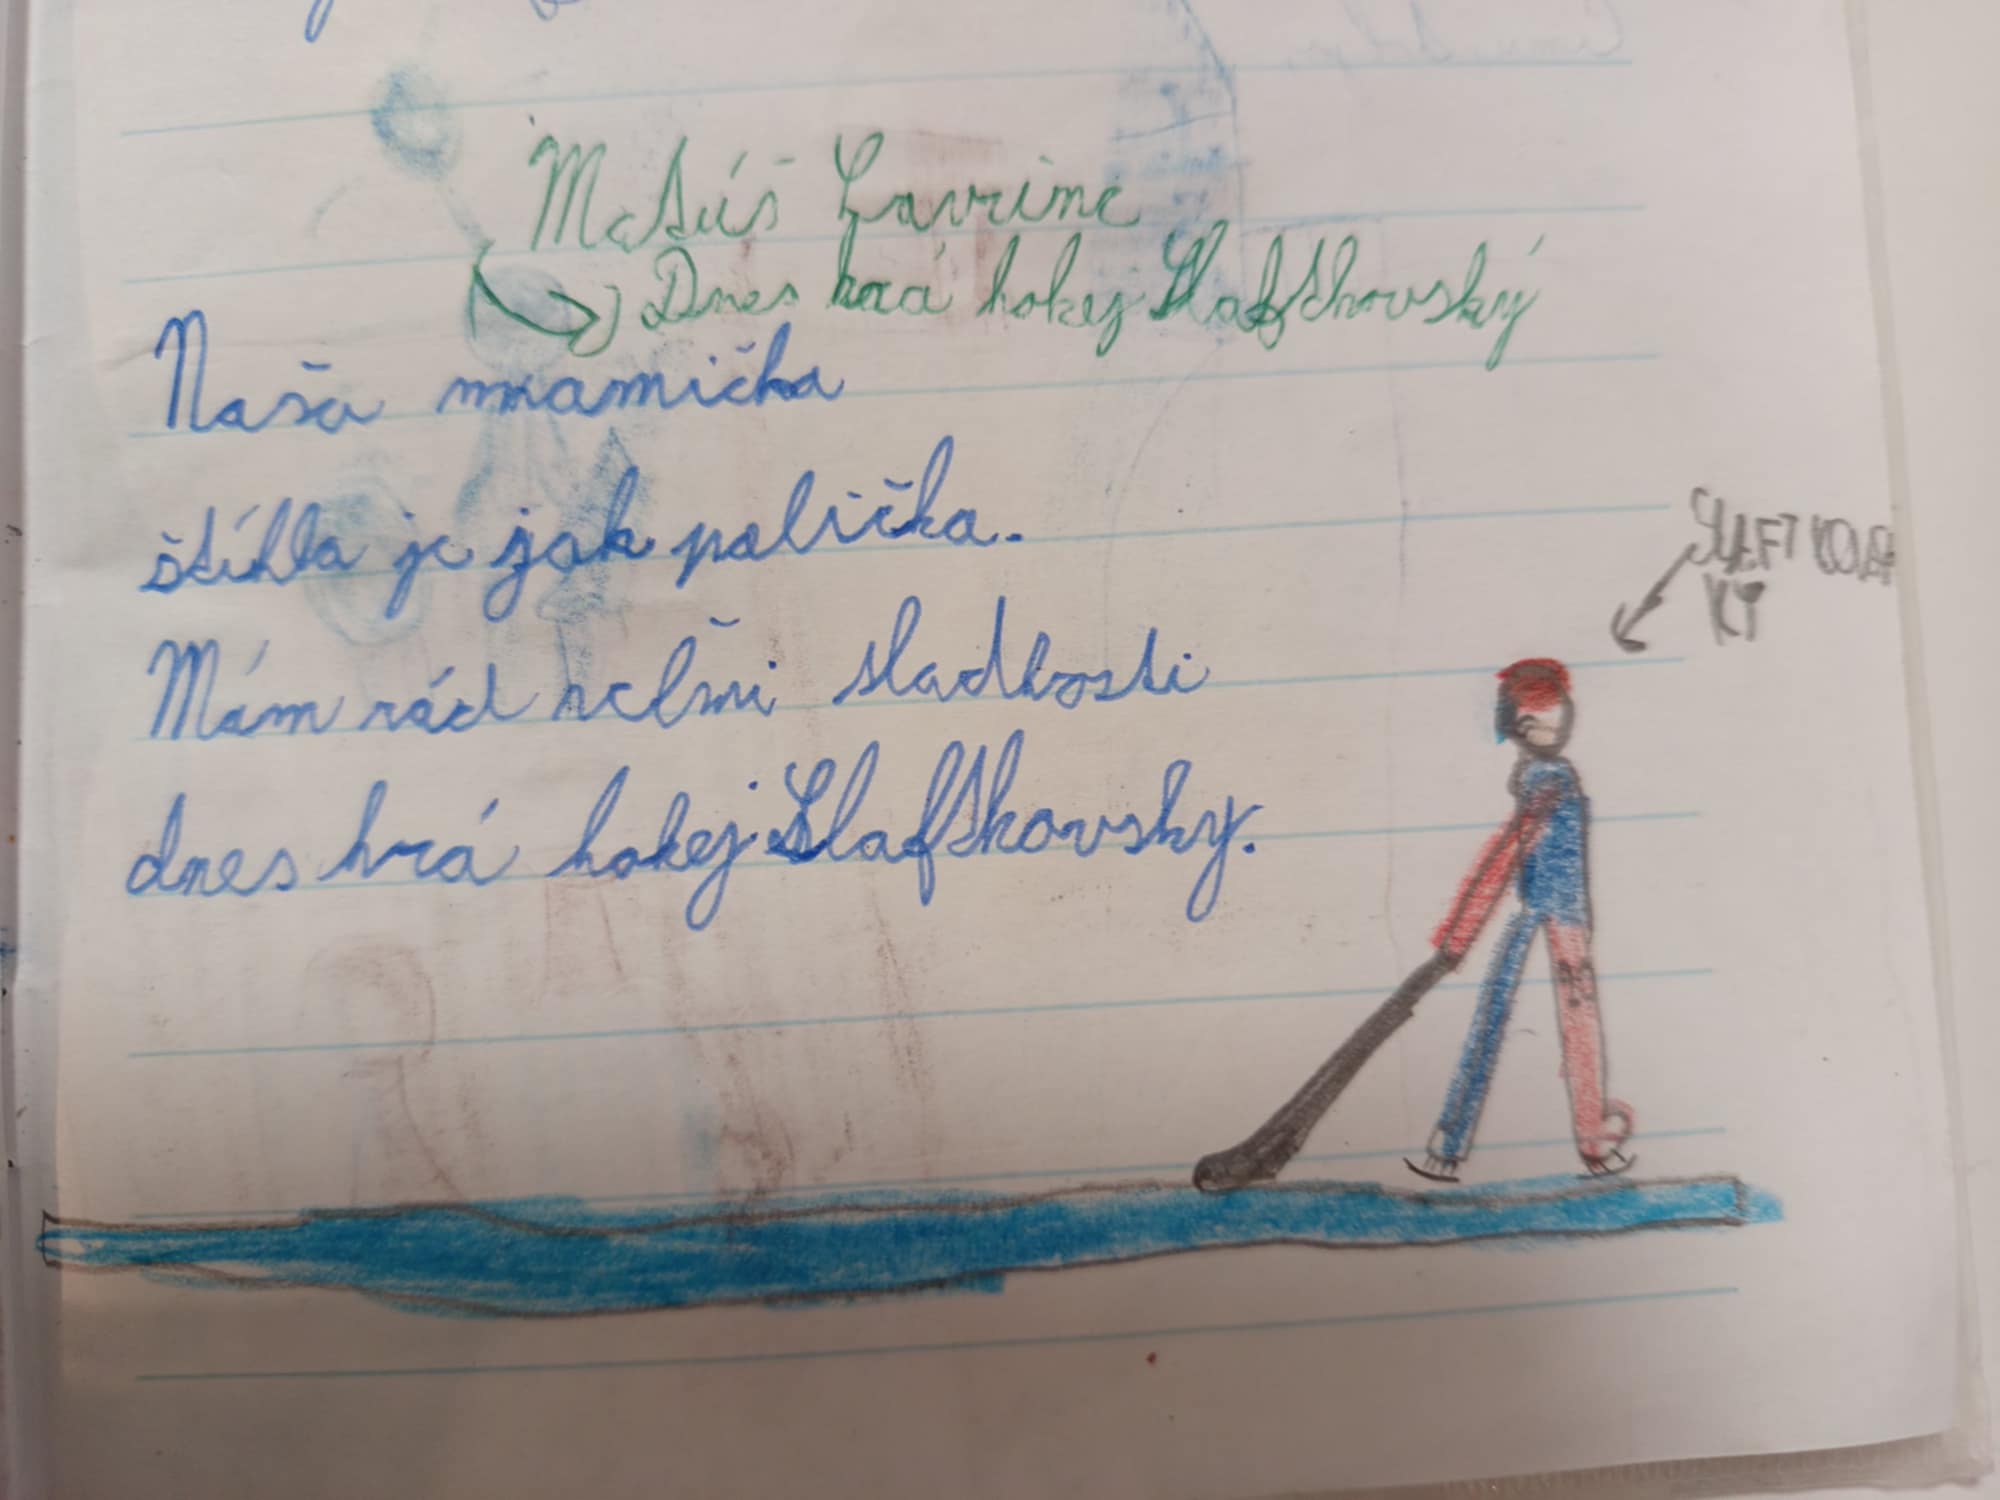 Matúš Lavrinc
Dnes hrá hokej Slafskovský
Naša mamička
štíhla je jak palička.
Mám rád veľmi sladkosti
dnes hrá hokej Slafskovsky.
KÝ